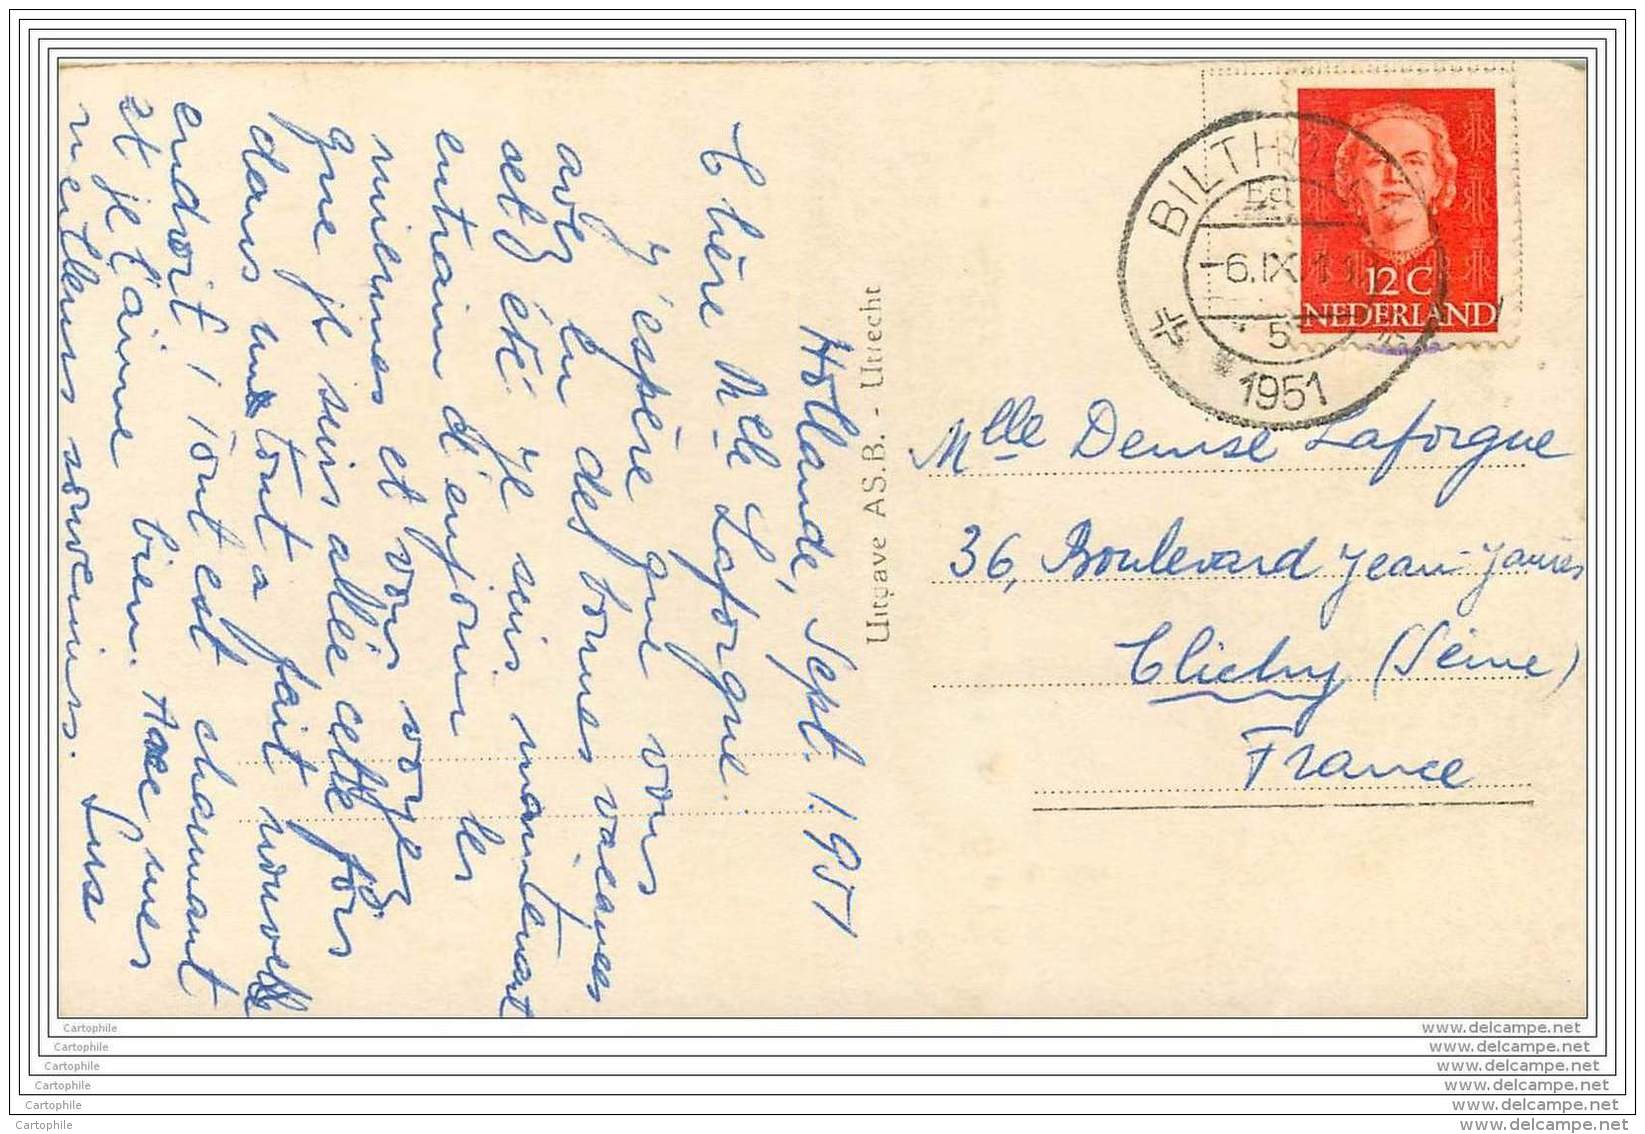 Hollande, Sept. 1951
Chère Mlle Laforgue.
J'espère que vous
avez eu des bonnes vacances
cet été. Je suis maintenant
entrain d'enjouir les
miennes et vous voyez
que je suis allée cette fois
dans une tout a fait nouvelle
endroit! Tout est charmant
et je l'aime bien. Avec mes
meilleurs souvenirs.
Uitgave A.S.B. - Utrecht
BILTHOVEN
6.IX.11
5
1951
12 C
NEDERLAND
Mlle Denise Laforgue
36, Boulevard Jean-Jaurès
Clichy (Seine)
France
Cartophile www.delcampe.net
Cartophile www.delcampe.net
Cartophile www.delcampe.net
Cartophile www.delcampe.net
Cartophile www.delcampe.net
Cartophile www.delcampe.net